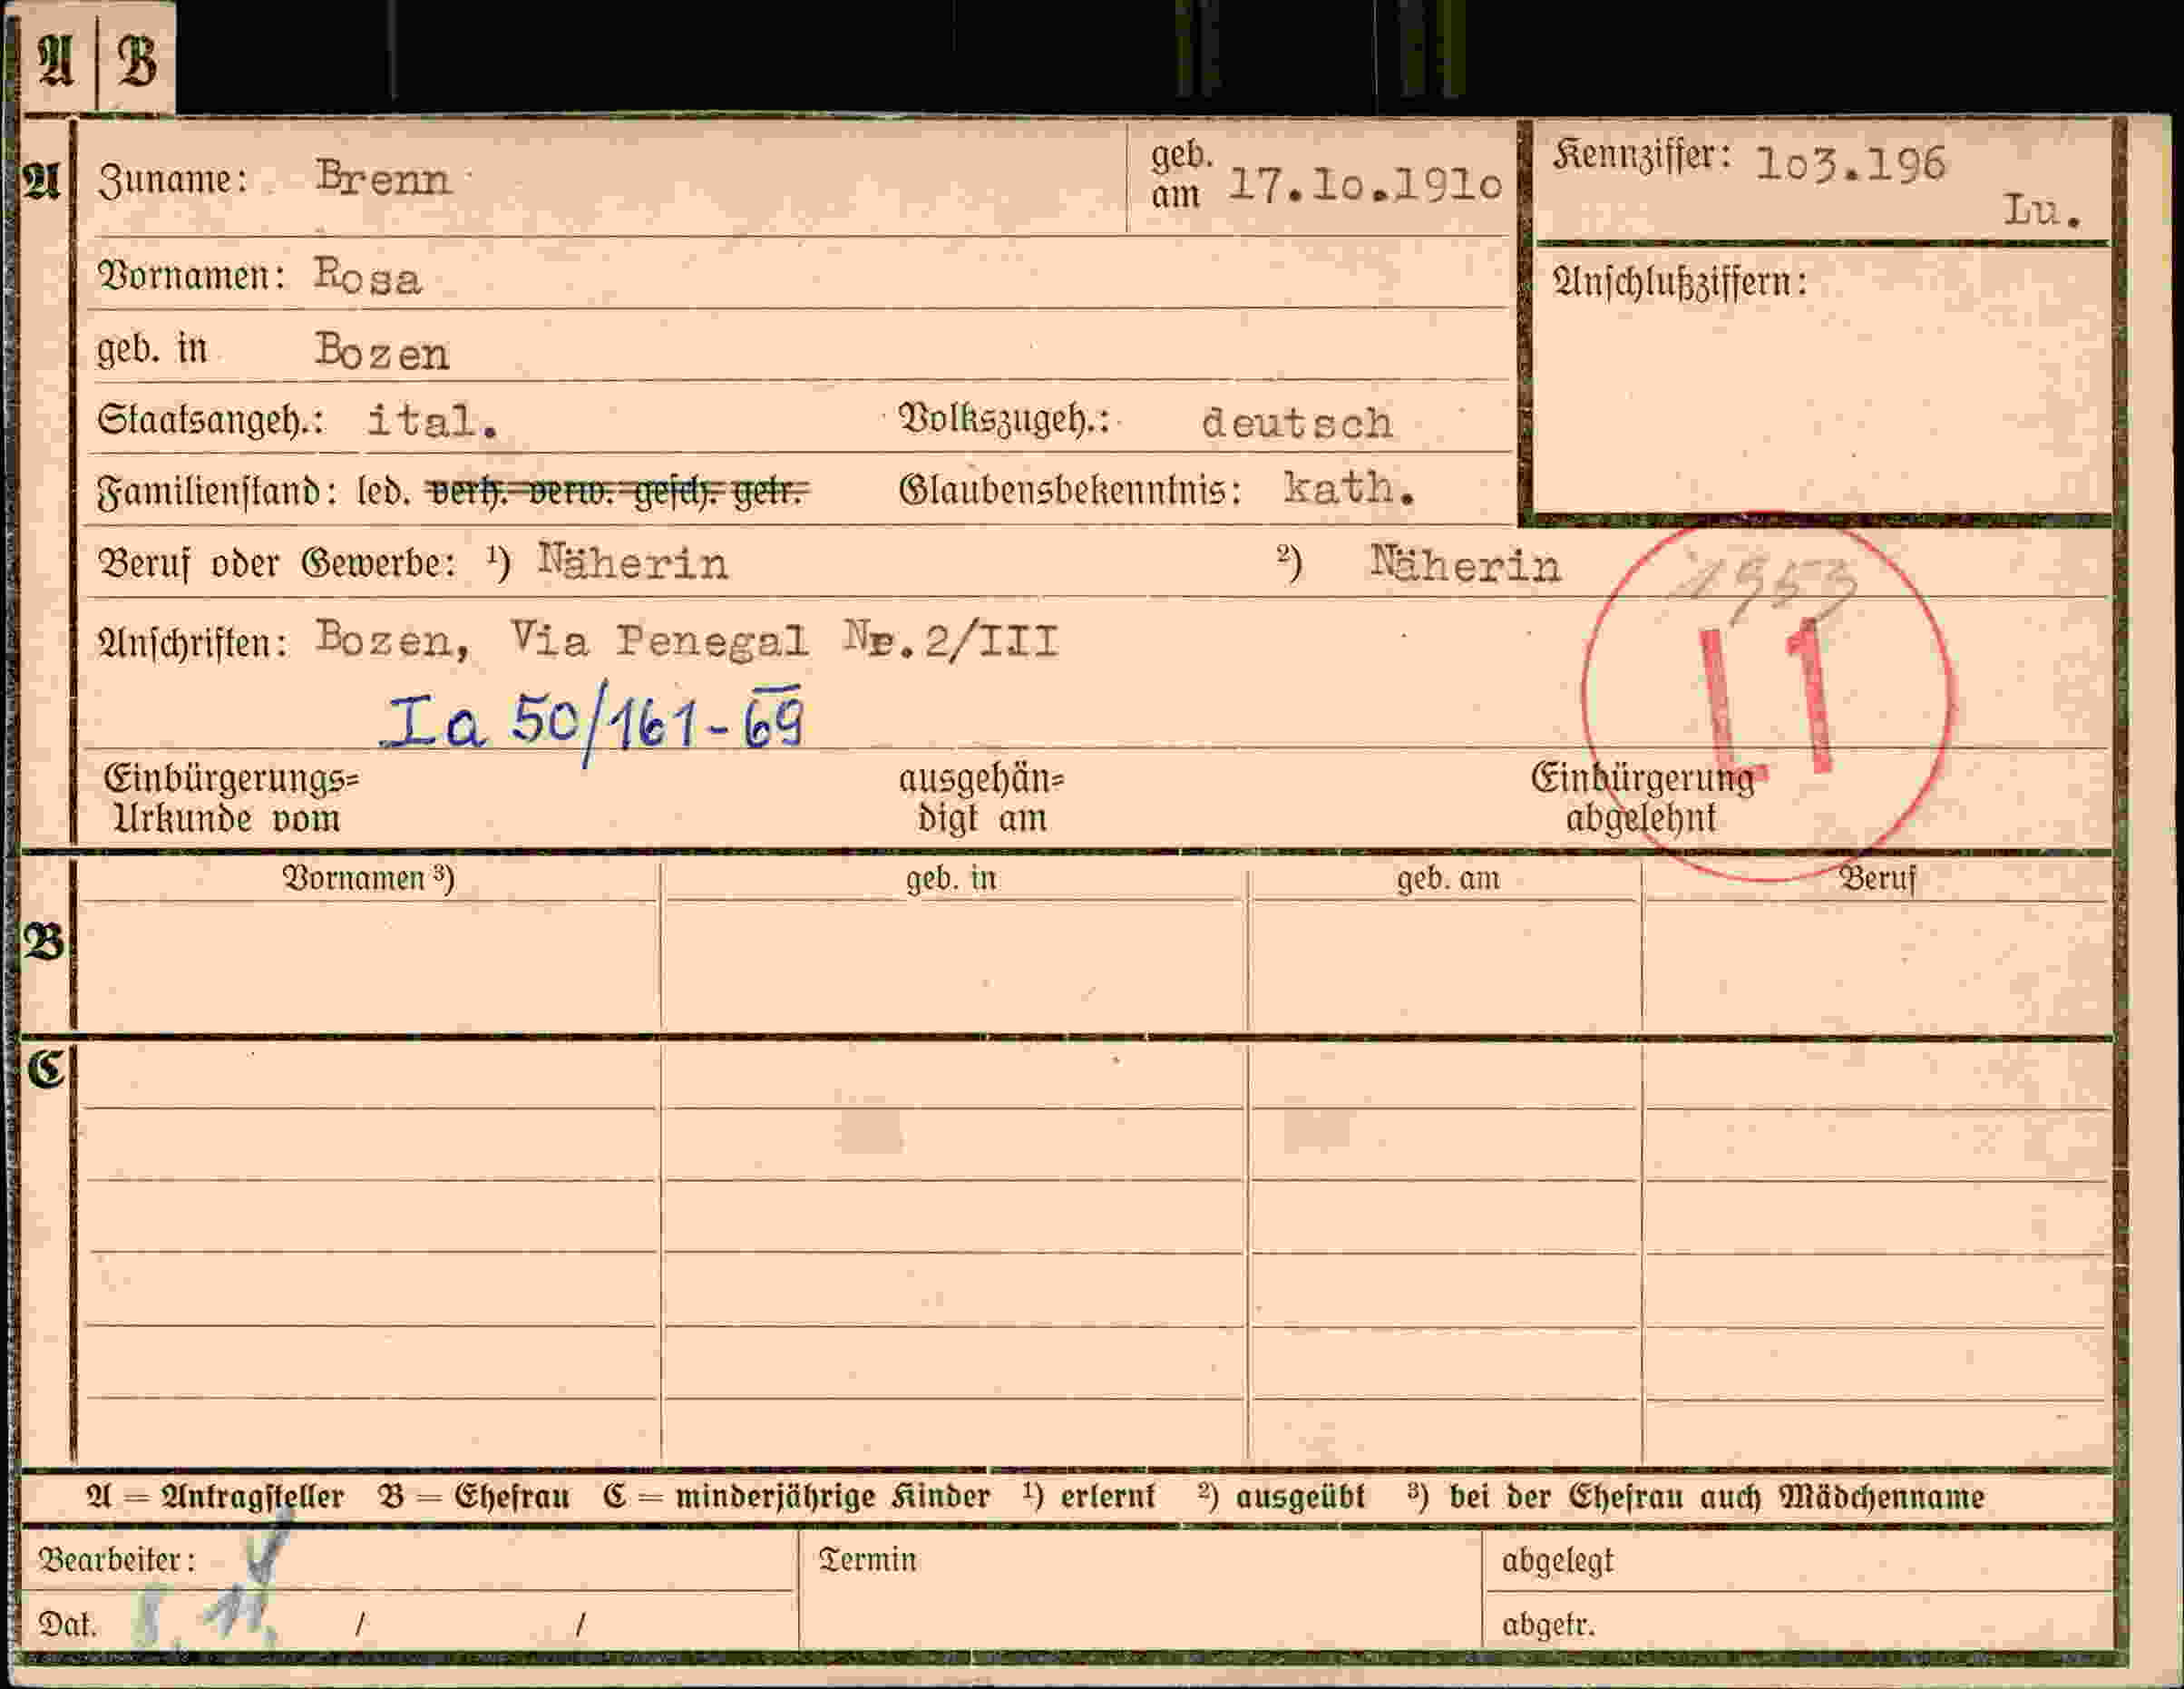 A | B
A Zuname: Brenn geb. am 17.1o.191o Kennziffer: 1o3.196
Lu.
Vornamen: Rosa Anschlußziffern:
geb. in Bozen
Staatsangeh.: ital. Volkszugeh.: deutsch
Familienstand: led. verh. verw. gesch. getr. Glaubensbekenntnis: kath.
Beruf oder Gewerbe: ¹) Näherin ²) Näherin
1953
Anschriften: Bozen, Via Penegal Nr.2/III
L1
Ia 50/161-69
Einbürgerungs= ausgehän= Einbürgerung
Urkunde vom digt am abgelehnt
Vornamen ³) geb. in geb. am Beruf
B
C
A = Antragsteller B = Ehefrau C = minderjährige Kinder ¹) erlernt ²) ausgeübt ³) bei der Ehefrau auch Mädchenname
Bearbeiter: Termin abgelegt
Dat. 8. 11. / / abgetr.